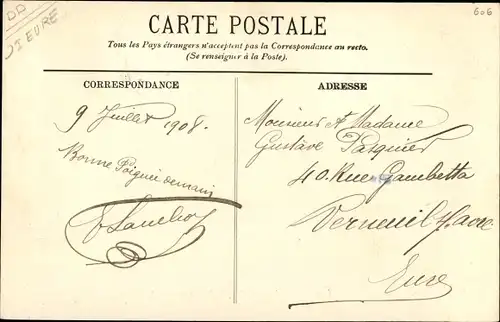 DD
EURE
606
CARTE POSTALE
Tous les Pays étrangers n'acceptent pas la Correspondance au recto.
(Se renseigner à la Poste).
CORRESPONDANCE
9 Juillet 1908.
Bonne Poignée de main
ADRESSE
Monsieur et Madame
Gustave Pasquier
40 Rue Gambetta
Verneuil s/ Avre
Eure